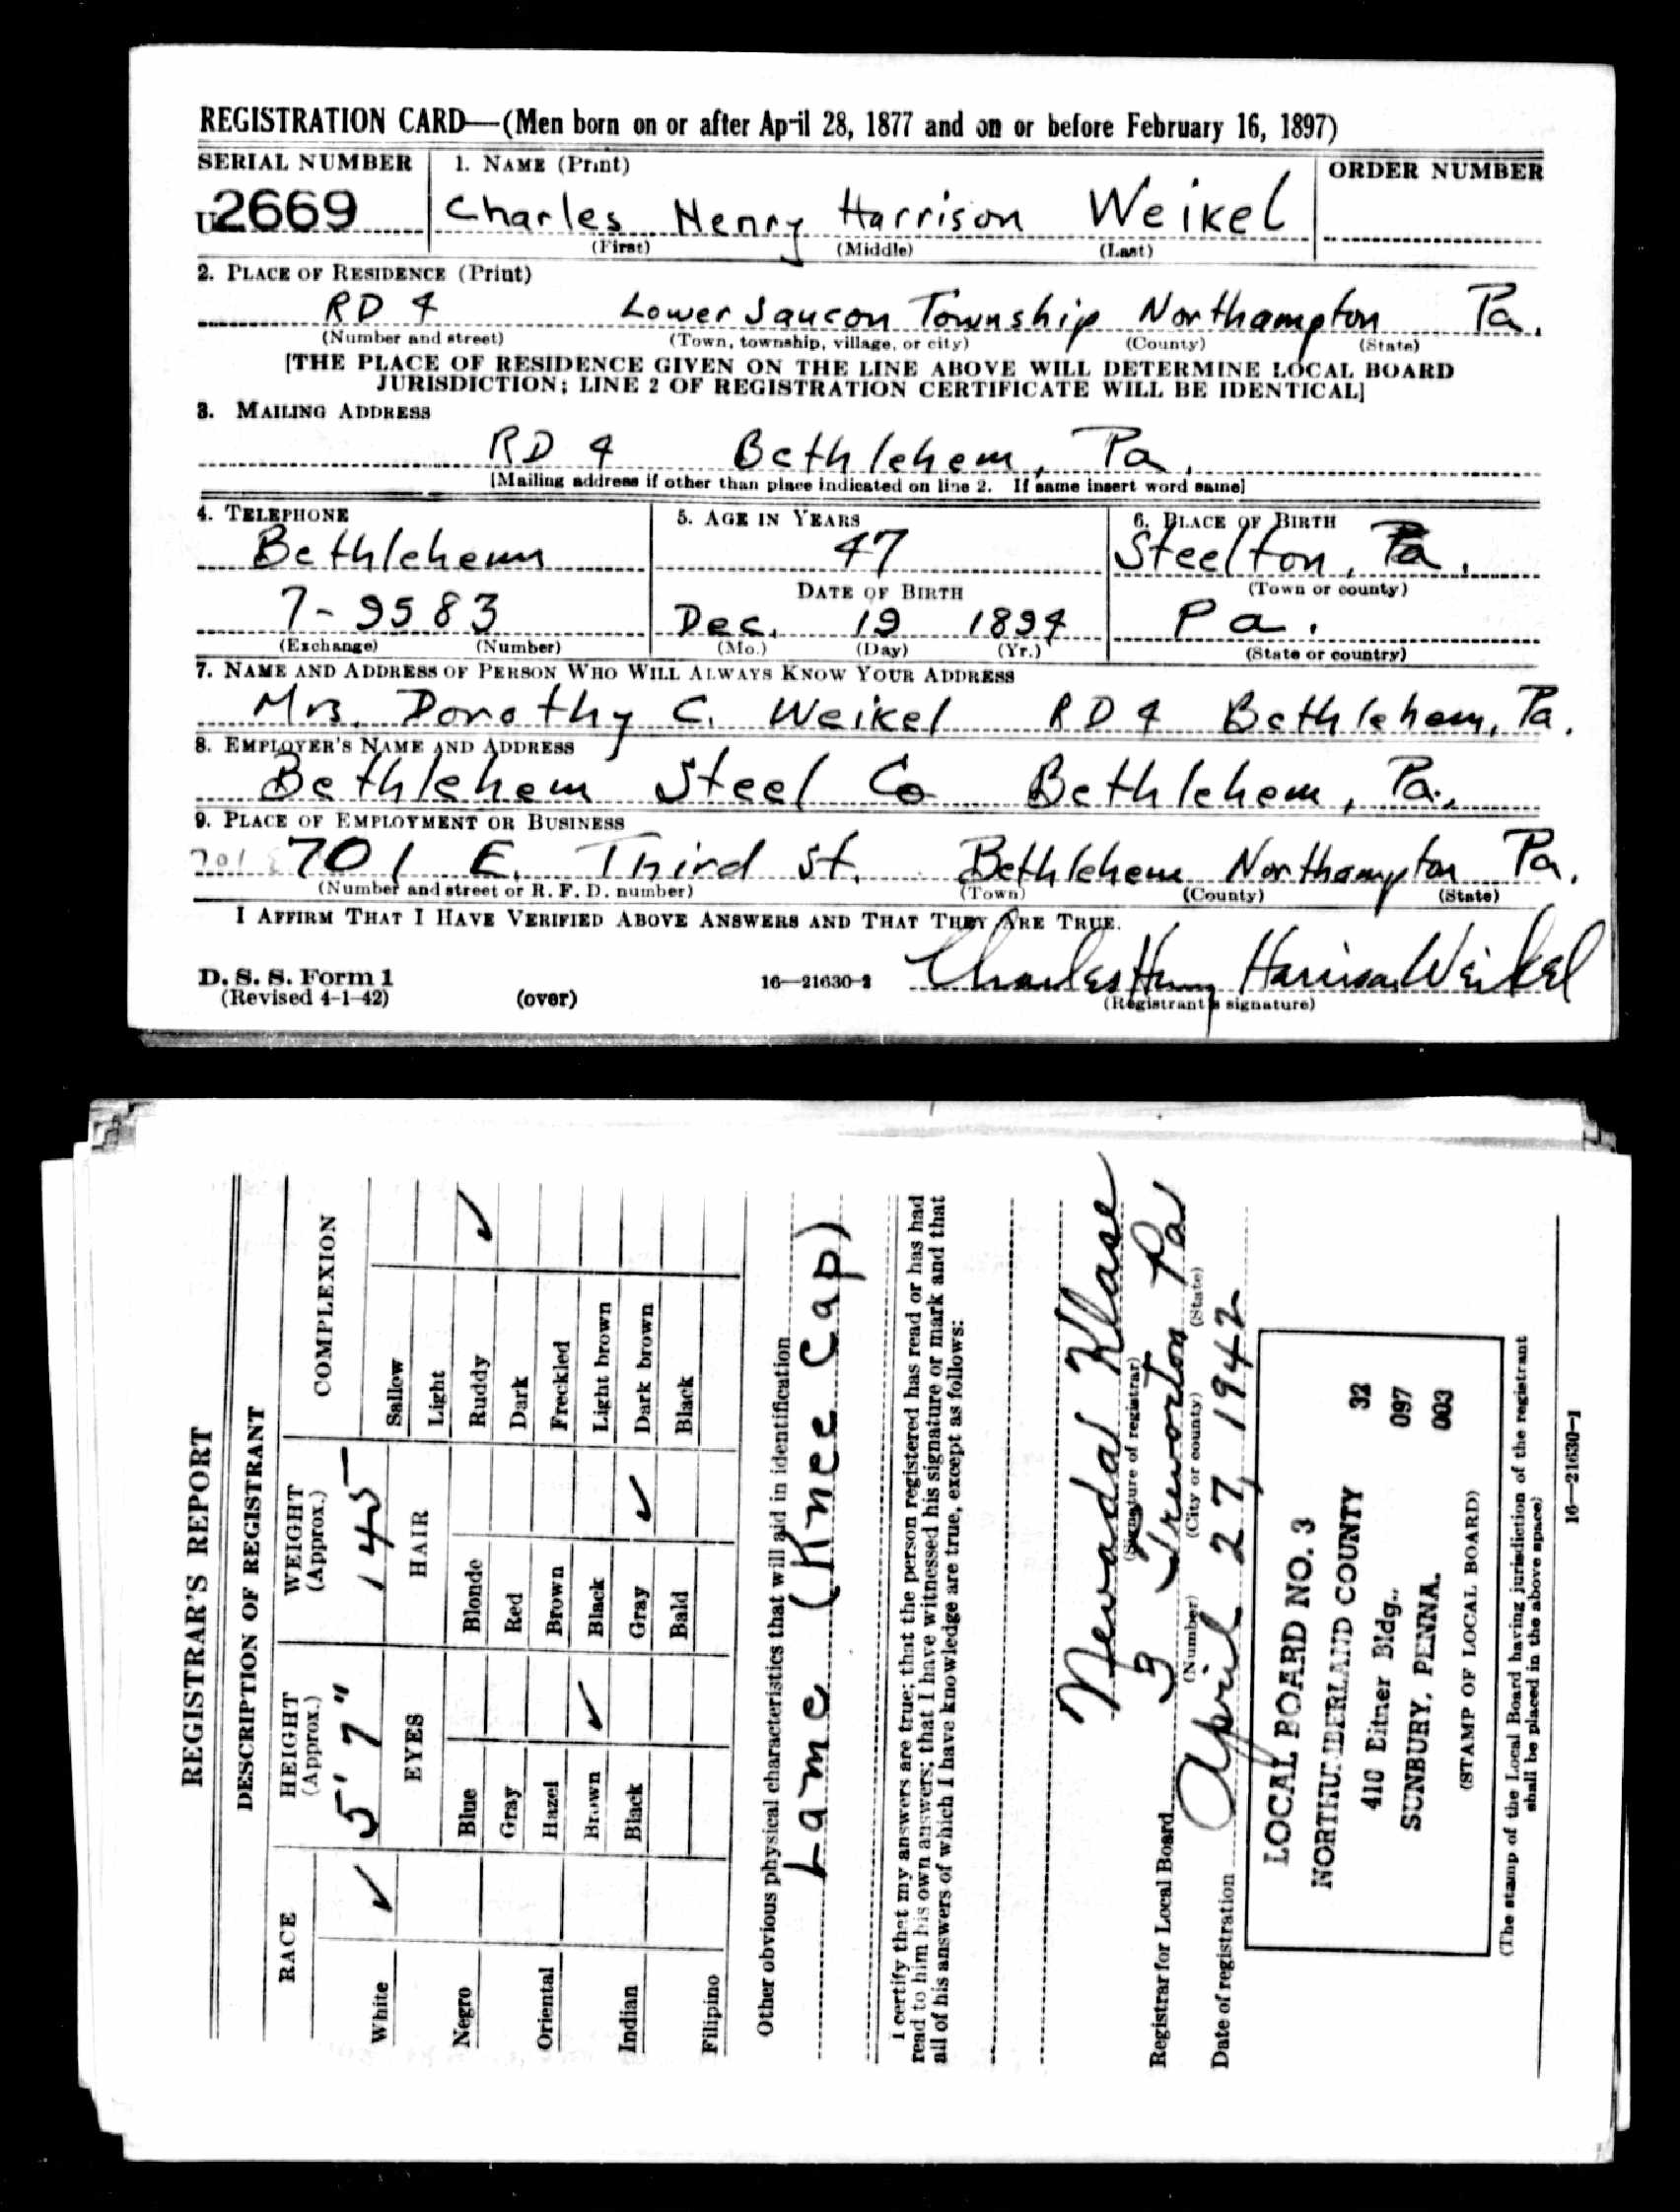 REGISTRATION CARD—(Men born on or after April 28, 1877 and on or before February 16, 1897)
SERIAL NUMBER 1. NAME (Print) ORDER NUMBER
U 2669 Charles Henry Harrison Weikel
(First) (Middle) (Last)
2. PLACE OF RESIDENCE (Print)
RD 4 Lower Saucon Township Northampton Pa.
(Number and street) (Town, township, village, or city) (County) (State)
[THE PLACE OF RESIDENCE GIVEN ON THE LINE ABOVE WILL DETERMINE LOCAL BOARD
JURISDICTION; LINE 2 OF REGISTRATION CERTIFICATE WILL BE IDENTICAL]
3. MAILING ADDRESS
RD 4 Bethlehem, Pa.
[Mailing address if other than place indicated on line 2. If same insert word same]
4. TELEPHONE 5. AGE IN YEARS 6. PLACE OF BIRTH
Bethlehem 47 Steelton, Pa.
DATE OF BIRTH (Town or county)
7-9583 Dec. 19 1894 Pa.
(Exchange) (Number) (Mo.) (Day) (Yr.) (State or country)
7. NAME AND ADDRESS OF PERSON WHO WILL ALWAYS KNOW YOUR ADDRESS
Mrs. Dorothy C. Weikel RD 4 Bethlehem, Pa.
8. EMPLOYER'S NAME AND ADDRESS
Bethlehem Steel Co Bethlehem, Pa.
9. PLACE OF EMPLOYMENT OR BUSINESS
701 701 E. Third St. Bethlehem Northampton Pa.
(Number and street or R. F. D. number) (Town) (County) (State)
I AFFIRM THAT I HAVE VERIFIED ABOVE ANSWERS AND THAT THEY ARE TRUE.
Charles Henry Harrison Weikel
D. S. S. Form 1
(Revised 4-1-42) (over) 16—21630-2 (Registrant's signature)
REGISTRAR'S REPORT
DESCRIPTION OF REGISTRANT
RACE HEIGHT (Approx.) WEIGHT (Approx.) COMPLEXION
White ✓ 5' 7" 145 Sallow
EYES HAIR Light
Negro Blue Blonde Ruddy ✓
Gray Red Dark
Oriental Hazel Brown Freckled
Brown ✓ Black Light brown
Indian Black Gray ✓ Dark brown
Bald Black
Filipino
Other obvious physical characteristics that will aid in identification
Lame (Knee Cap)
I certify that my answers are true; that the person registered has read or has had
read to him his own answers; that I have witnessed his signature or mark and that
all of his answers of which I have knowledge are true, except as follows:
Nevada Klase
(Signature of registrar)
Registrar for Local Board 3 Trevorton Pa
(Number) (City or county) (State)
Date of registration April 27, 1942
LOCAL BOARD NO. 3 32
NORTHUMBERLAND COUNTY 097
410 Eitner Bldg. 003
SUNBURY, PENNA.
(STAMP OF LOCAL BOARD)
(The stamp of the Local Board having jurisdiction of the registrant
shall be placed in the above space)
16—21630-1